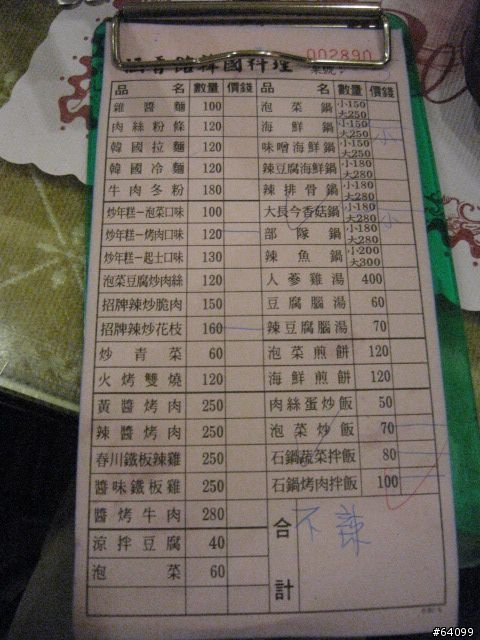 002890
香館韓國料理
品名 數量 價錢 品名 數量 價錢
雜醬麵 100 泡菜鍋 小150 大250
肉絲粉條 120 海鮮鍋 小150 大250 小
韓國拉麵 120 味噌海鮮鍋 小150 大250
韓國冷麵 120 辣豆腐海鮮鍋 小180 大280
牛肉冬粉 180 辣排骨鍋 小180 大280
炒年糕一泡菜口味 100 大長今香菇鍋 小180 大280 小
炒年糕一烤肉口味 120 部隊鍋 小180 大280
炒年糕一起士口味 130 辣魚鍋 小200 大300
泡菜豆腐炒肉絲 120 人蔘雞湯 400
招牌辣炒脆肉 150 豆腐腦湯 60
招牌辣炒花枝 160 辣豆腐腦湯 70
炒青菜 60 泡菜煎餅 120
火烤雙燒 120 海鮮煎餅 120
黃醬烤肉 250 肉絲蛋炒飯 50
辣醬烤肉 250 泡菜炒飯 70
春川鐵板辣雞 250 石鍋蔬菜拌飯 80
醬味鐵板雞 250 石鍋烤肉拌飯 100
醬烤牛肉 280
涼拌豆腐 40
泡菜 60
合計 不辣
#64099